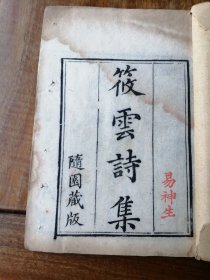 筱雲詩集
隨園藏版
易神生